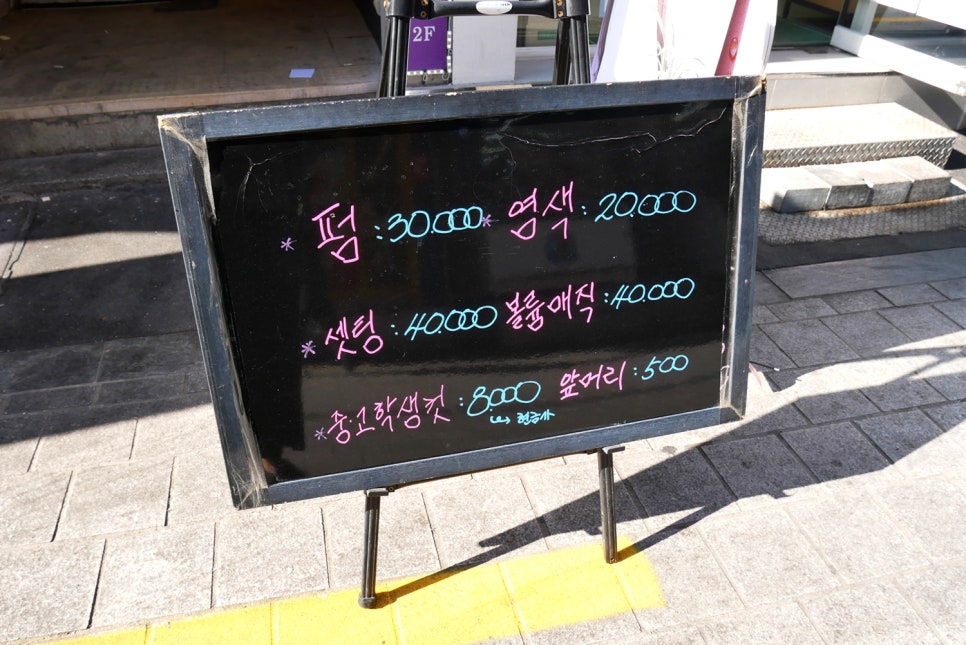 2F
* 펌 : 30.000 * 염색 : 20.000
* 셋팅 : 40.000 볼륨매직 : 40.000
* 중고학생컷 : 8.000 앞머리 : 500
↳ 현금가